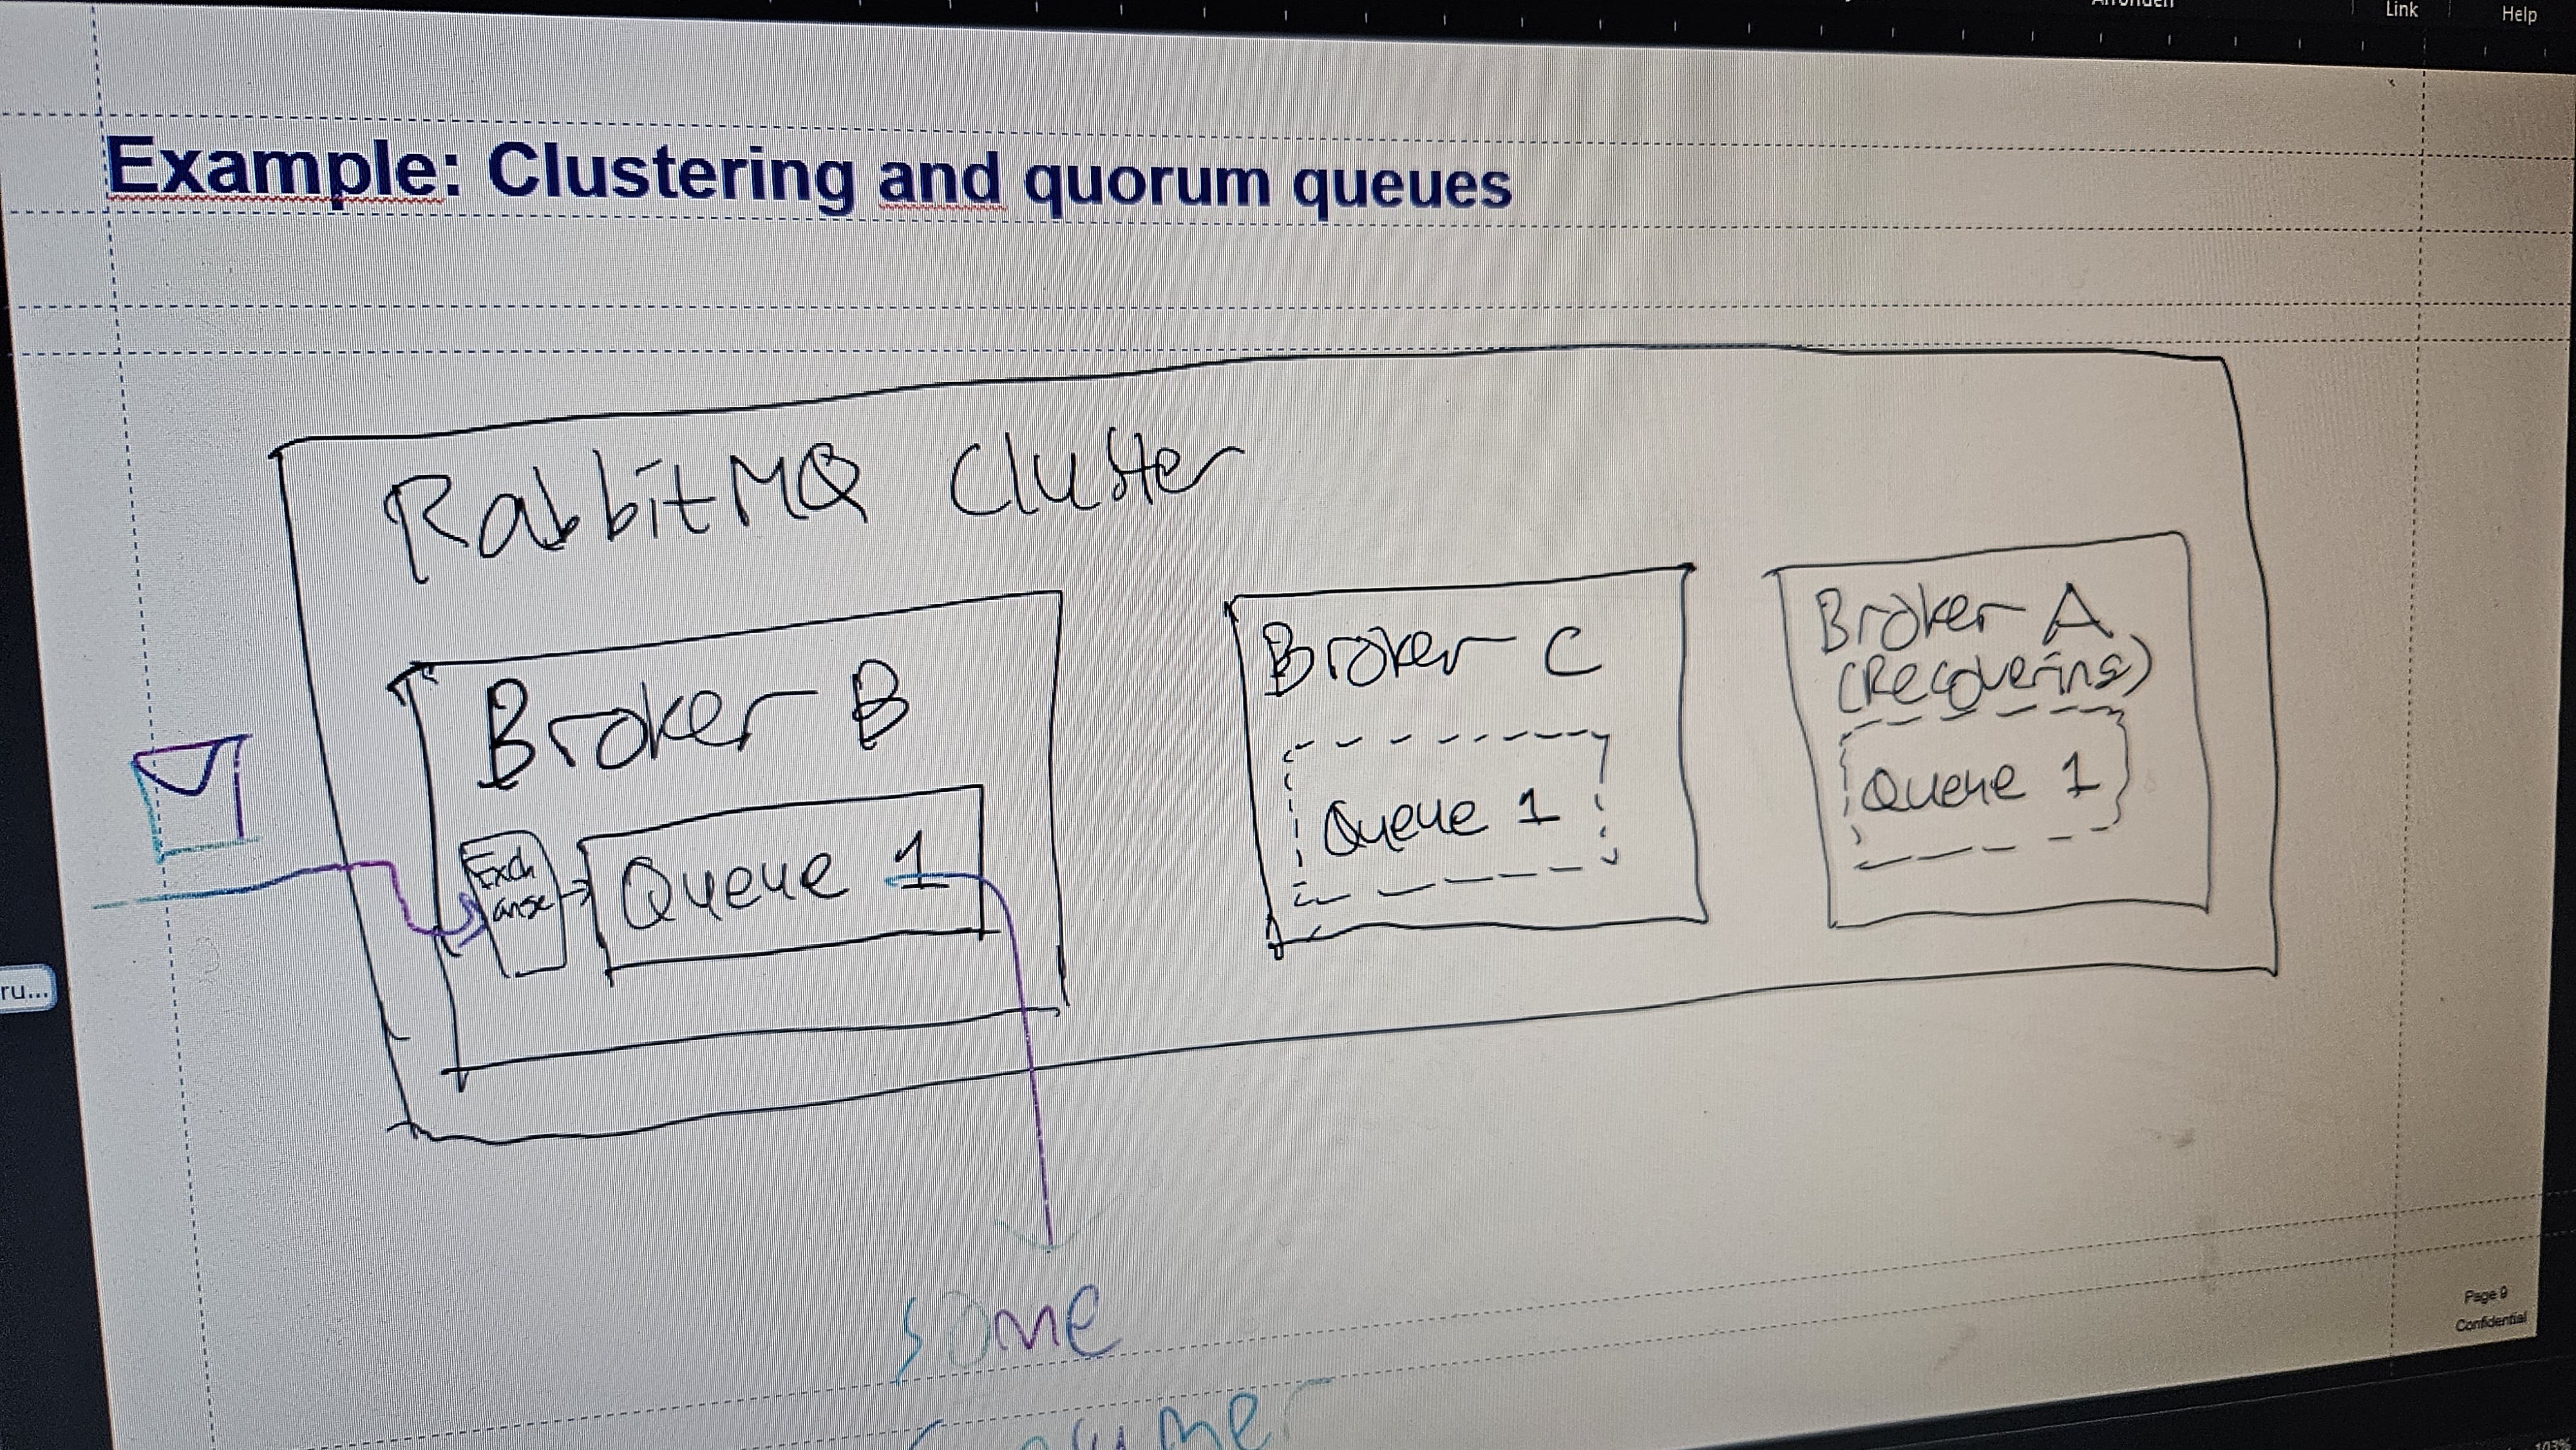 Link
Help
Example: Clustering and quorum queues
RabbitMQ Cluster
Broker B
Exch
ange
Queue 1
Broker C
Queue 1
Broker A
(Recovering)
Queue 1
ru...
some
Page 9
Confidential